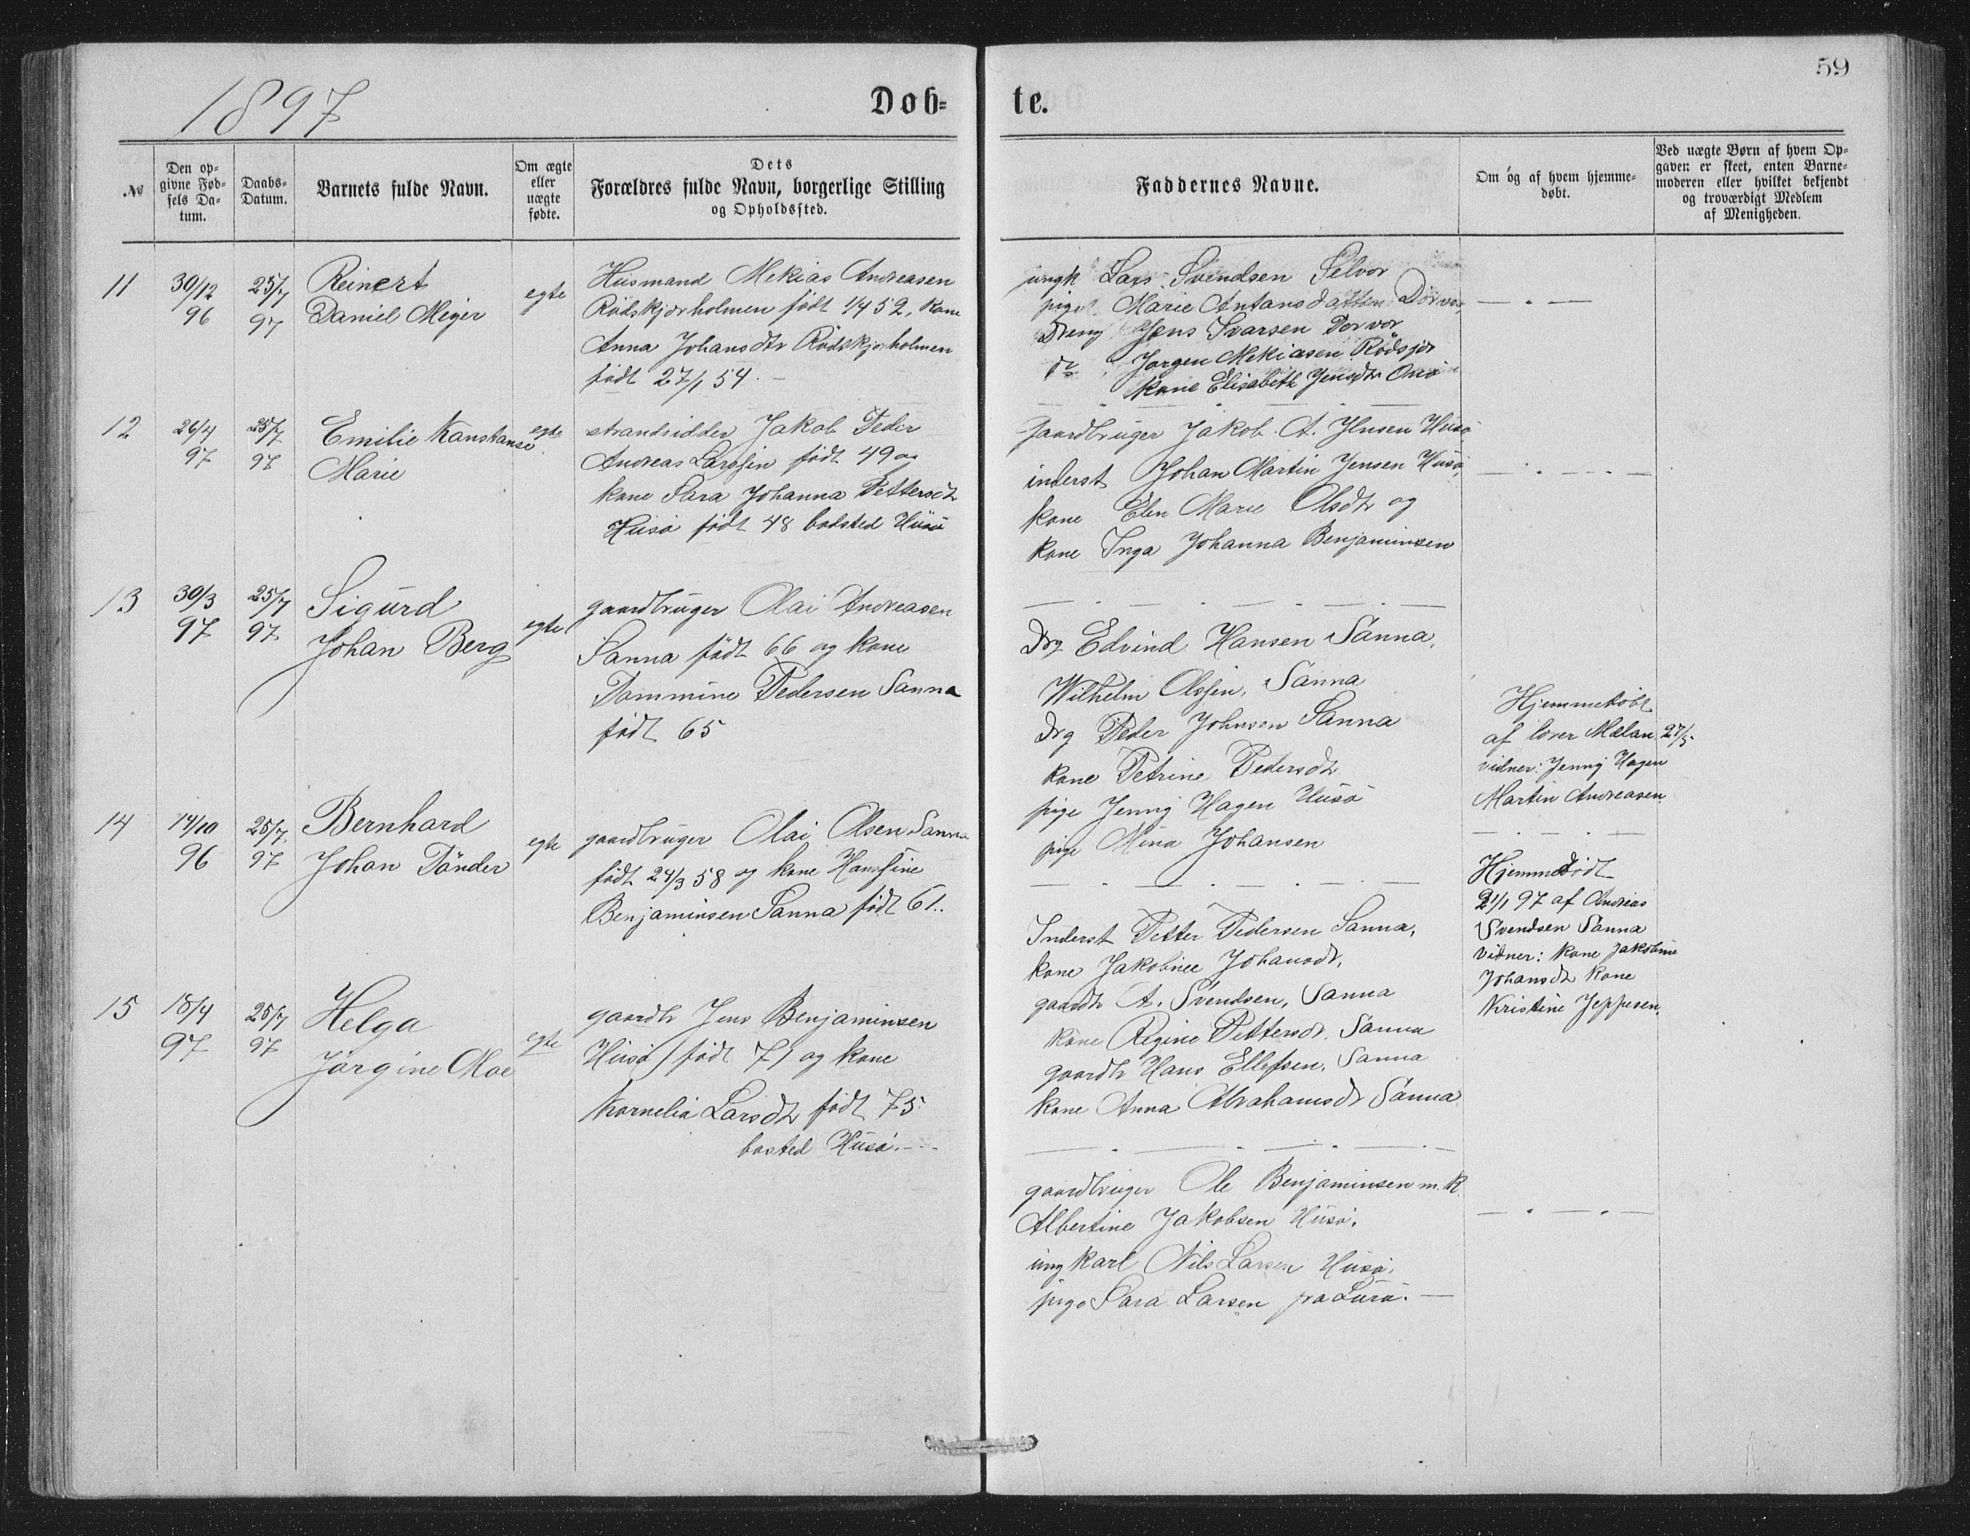 59
1897
Døb-
te.
№
Den op-
givne Fød-
sels Da-
tum.
Daabs-
Datum.
Barnets fulde Navn.
Om ægte
eller
uægte
fødte.
Dets
Forældres fulde Navn, borgerlige Stilling
og Opholdssted.
Faddernes Navne.
Om og af hvem hjemme-
døbt.
Ved uægte Børn af hvem Op-
gaven er skeet, enten Barne-
moderen eller hvilket bekjendt
og troværdigt Medlem
af Menigheden.
11
30/12
96
25/7
97
Reinert
Daniel Meyer
egte
Husmand Mekias Andreasen
Rödskjærholmen født 1/4 52, kone
Anna Johansdtr Rödskjærholmen
født 27/1 54. —
ungk Lars Svendsen Selvor
pige Marie Antonsdatter
Dreng Jens Ivarsen
do Jørgen Mekiasen
kone Elisabeth Jensdtr
12
26/4
97
25/7
97
Emilie Konstanse
Marie
egte
strandsidder Jakob Peder
Andreas Larssen født 49 og
kone Sara Johanna Pettersdtr
Husø født 48 bodsted Husø
gaardbruger Jakob A. Jensen Husø
inderst Johan Martin Jensen Husø,
kone Elen Marie Olsdtr og
kone Inga Johanna Benjaminsen
13
30/3
97
25/7
97
Sigurd
Johan Berg
egte
gaardbruger Olai Andreasen
Sanna født 66 og kone
Dammine Pedersen Sanna
født 65
drg Edvind Hansen Sanna,
Wilhelm Olssen, Sanna
drg Peder Johnsen Sanna
kone Petrine Pedersdtr
pige Jenny Hagen Husø
pige Mina Johansen
Hjemmedøbt
af lærer Mælan 27/5
vidner: Jenny Hagen
Martin Andreasen.
14
14/10
96
25/7
97
Bernhard
Johan Tönder
egte
gaardbruger Olai Olsen Sanna
født 24/3 58 og kone Hansine
Benjaminsen Sanna født 61.
Inderst Petter Pedersen Sanna,
kone Jakobine Johansdtr,
gaardbr A. Svendsen, Sanna
kone Regine Pettersdtr Sanna
gaardbr Hans Ellefsen, Sanna
kone Anna Abrahamsdtr Sanna
Hjemmedøbt
2/1 97 af Andreas
Svendsen Sanna
vidner: kone Jakobine
Johansdtr kone
Kristine Jeppesen.
15
18/4
97
25/7
97
Helga
Jørgine Moe
egte
gaardbr Jens Benjaminsen
Husø født 71 og kone
Kornelia Larsdtr født 75
bosted Husø. —
gaardbruger Ole Benjaminsen m. K.
Albertine Jakobsen Husø.
ungkarl Nils Larsen Husø.
pige Sara Larsen fra Lurø. —